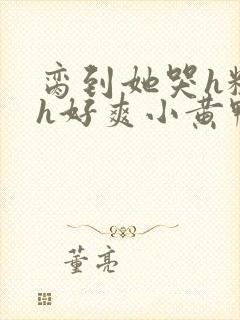 脔到她哭h
h好爽小黄
董亮